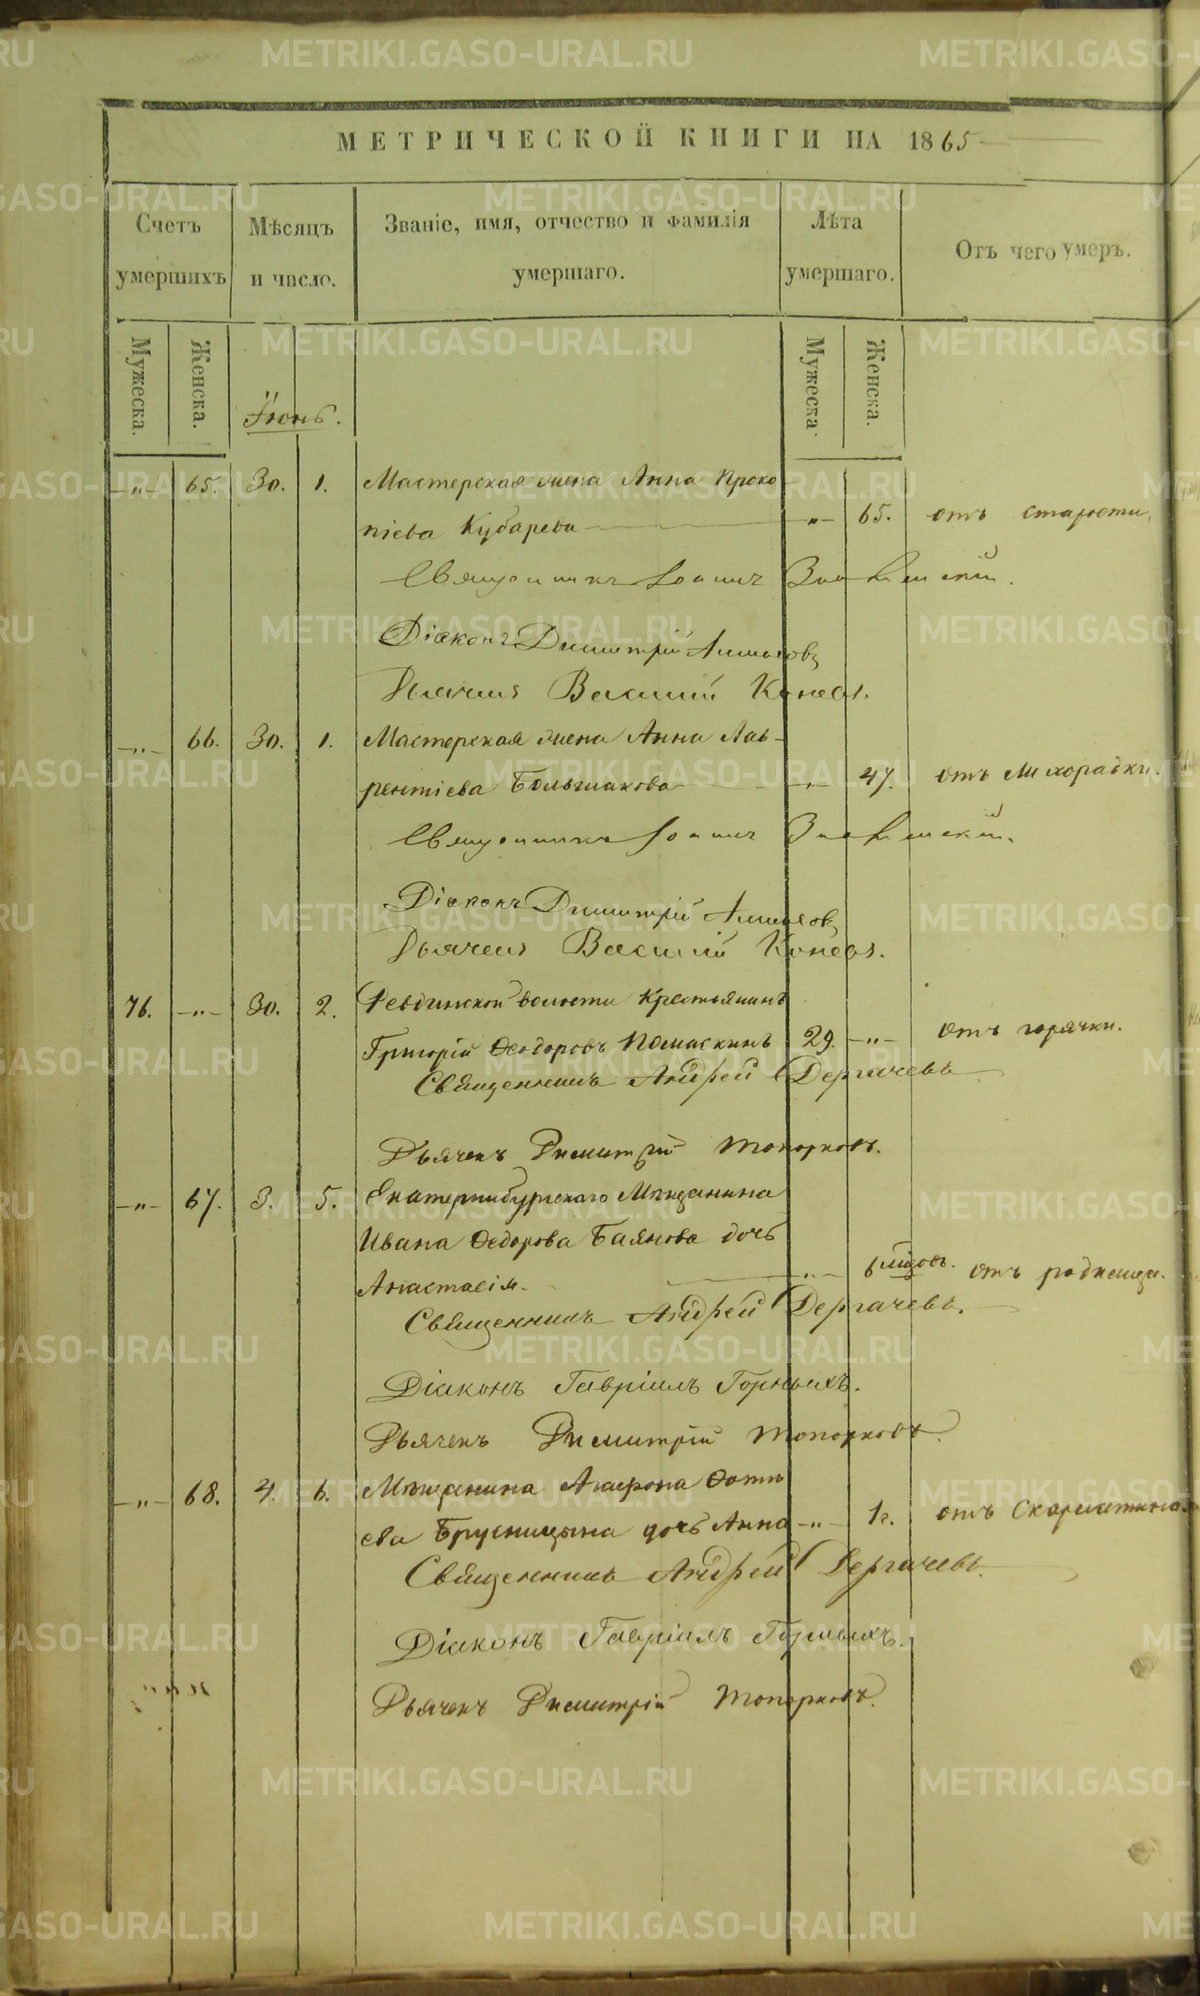 МЕТРИЧЕСКОЙ КНИГИ НА 1865
Счетъ умершихъ
Мѣсяцъ и число.
Званіе, имя, отчество и фамилія умершаго.
Лѣта умершаго.
Отъ чего умеръ.
Мужеска. Женска.
Мужеска. Женска.
Іюнь.
„ 65. 30. 1. Мастерская жена Анна Проко
піева Кубарева „ 65. отъ старости.
Священникъ Іоаннъ
Діаконъ Димитрій
Дьячекъ Василій Коневъ.
„ 66. 30. 1. Мастерская жена Анна Лав-
рентіева Большакова „ 47. отъ лихорадки.
Священникъ Іоаннъ
Діаконъ Димитрій
Дьячекъ Василій Коневъ.
76. „ 30. 2. Ревдинской волости Крестьянинъ
Григорій Ѳеодоровъ Помаскинъ 29. „ отъ горячки.
Священникъ Андрей Дергачевъ
Дьячекъ Димитрій Топорковъ.
„ 67. 3. 5. Екатеринбургскаго Мѣщанина
Ивана Ѳедорова Баянова дочь
Анастасія. „ 6 мѣсяцовъ. отъ родимца.
Священникъ Андрей Дергачевъ.
Діаконъ Гавріилъ Горныхъ.
Дьячекъ Димитрій Топорковъ.
„ 68. 4. 6. Мѣщанина Агафона Фоти
ева Брусницына дочь Анна „ 1г. отъ Скарлатина.
Священникъ Андрей Дергачевъ.
Діаконъ Гавріилъ Горныхъ.
Дьячекъ Димитрій Топорковъ.
METRIKI.GASO-URAL.RU